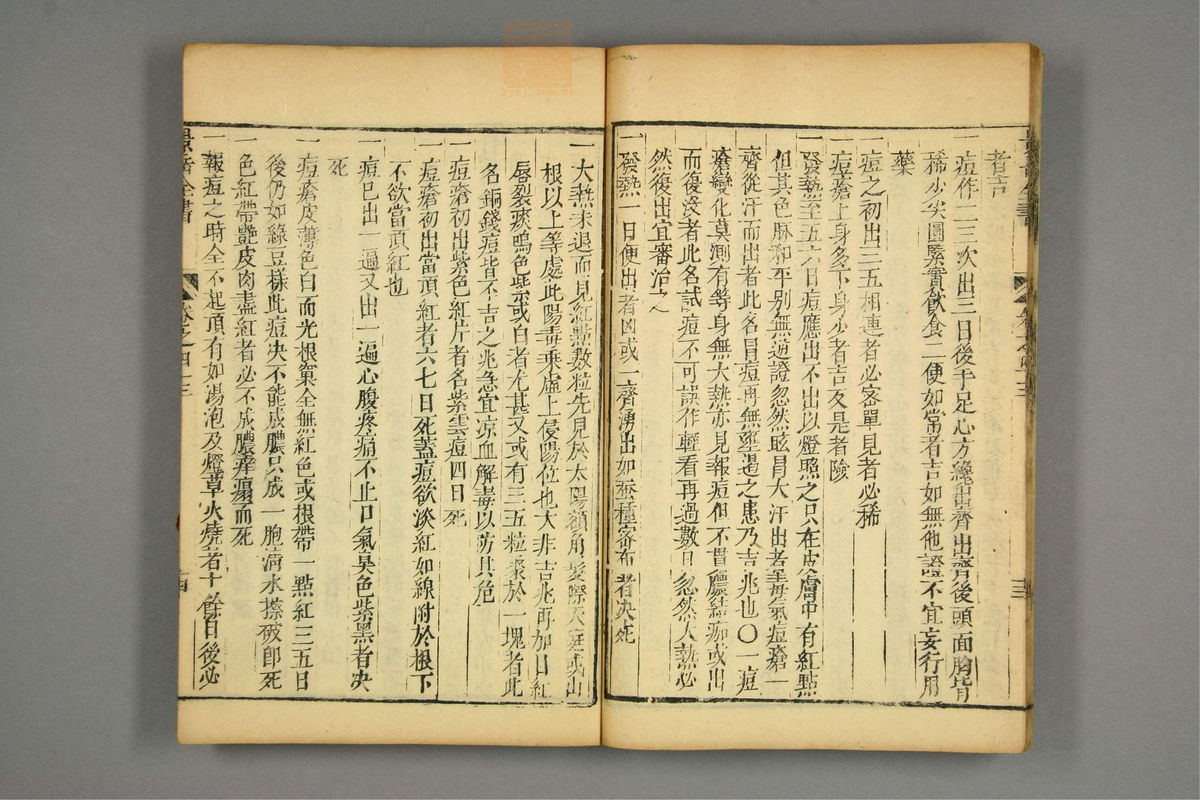 者吉
一痘作二三次出三日後手足心方纔出齊出齊後頭面胸背
稀少尖圓緊實飲食二便如常者吉如無他證不宜妄行用
藥
一痘之初出三五相連者必密單見者必稀
一痘瘡上身多下身少者吉反是者險
一發熱至五六日痘應出不出以燈照之只在皮膚中有紅點
但其色脉和平别無逆證忽然眩冒大汗出者毒氣痘瘡一
齊從汗而出者此名冒痘再無壅遏之患乃吉兆也〇一痘
瘡變化莫測有等身無大熱亦見報痘但不貫膿結痂或出
而復没者此名試痘不可誤作輕看再過數日忽然大熱必
然後出宜審治之
一發熱一日便出者凶或一齊湧出如蚕種密布者决死
景岳全書
卷之四十三
一大熱未退而見紅點數粒先見於太陽額角髮際天庭或山
根以上等處此陽毒乘虚上侵陽位也大非吉兆再加口紅
唇裂痰鳴色紫或白者尤甚又或有三五粒聚於一塊者此
名銅錢痘皆不吉之兆急宜凉血解毒以防其危
一痘瘡初出紫色紅片者名紫雲痘四日死
一痘瘡初出當頂紅者六七日死蓋痘欲淡紅如線附於根下
不欲當頂紅也
一痘已出一遍又出一遍心腹疼痛不止口氣臭色紫黑者决
死
一痘瘡皮薄色白而光根窠全無紅色或根帶一點紅三五日
後仍如綠豆樣此痘决不能成膿只成一胞清水擦破卽死
一色紅帶艷皮肉盡紅者必不成膿癢塌而死
一報痘之時全不起頂有如湯泡及燈草火燒者十餘日後必
景岳全書
卷之四十三